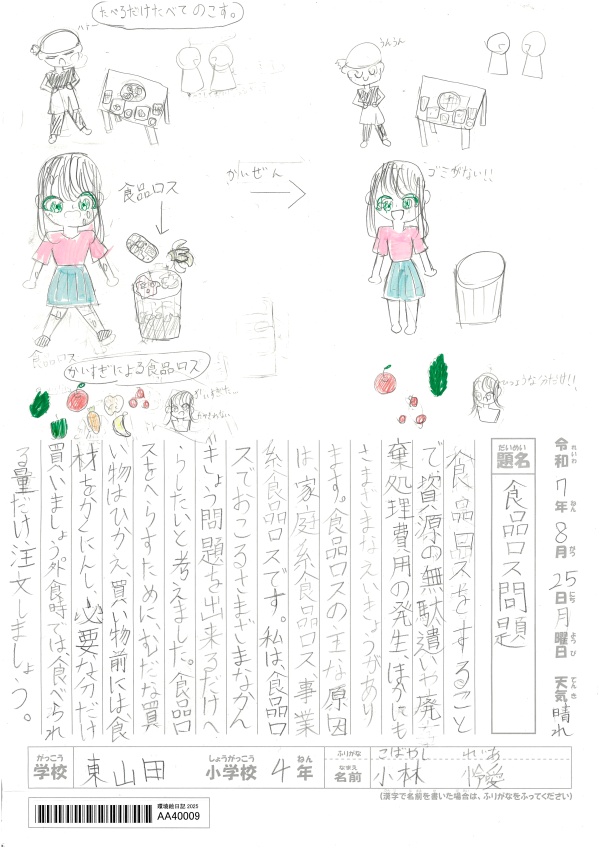 たべるだけたべてのこす。
うんうん
食品ロス
かいぜん
ゴミがない!!
食品ロス
かいすぎによる食品ロス
かいすぎた…
たべきれない
ひつような分だけ!!
令和7年8月25日月曜日 天気 晴れ
れいわ ねん がつ にち ようび てんき
だいめい
題名 食品ロス問題
食品ロスをすること
で、資源の無駄遣いや廃
棄処理費用の発生、ほかにも
さまざまなえいきょうがあり
ます。食品ロスの主な原因
は、家庭系食品ロス事業
系食品ロスです。私は、食品ロ
スでおこるさまざまなかん
きょう問題を出来るだけへ
らしたいと考えました。食品ロ
スをへらすために、むだな買
い物はひかえ、買い物前には、食
材をかくにんし、必要な分だけ
買いましょう外食時では食べられ
る量だけ注文しましょう。
がっこう しょうがっこう ねん
学校 東山田 小学校 4年
ふりがな こばやし れいあ
なまえ
名前 小林 怜愛
(漢字で名前を書いた場合は、ふりがなをふってください)
環境絵日記 2025
AA40009